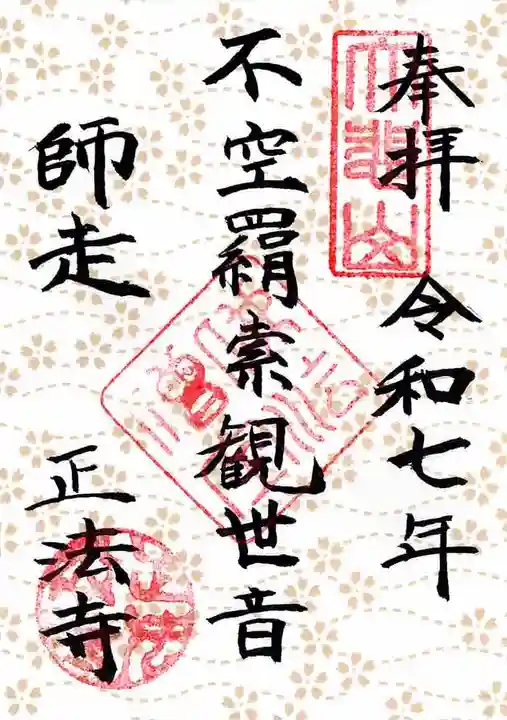 奉拝 令和七年
不空羂索観世音
師走 正法寺